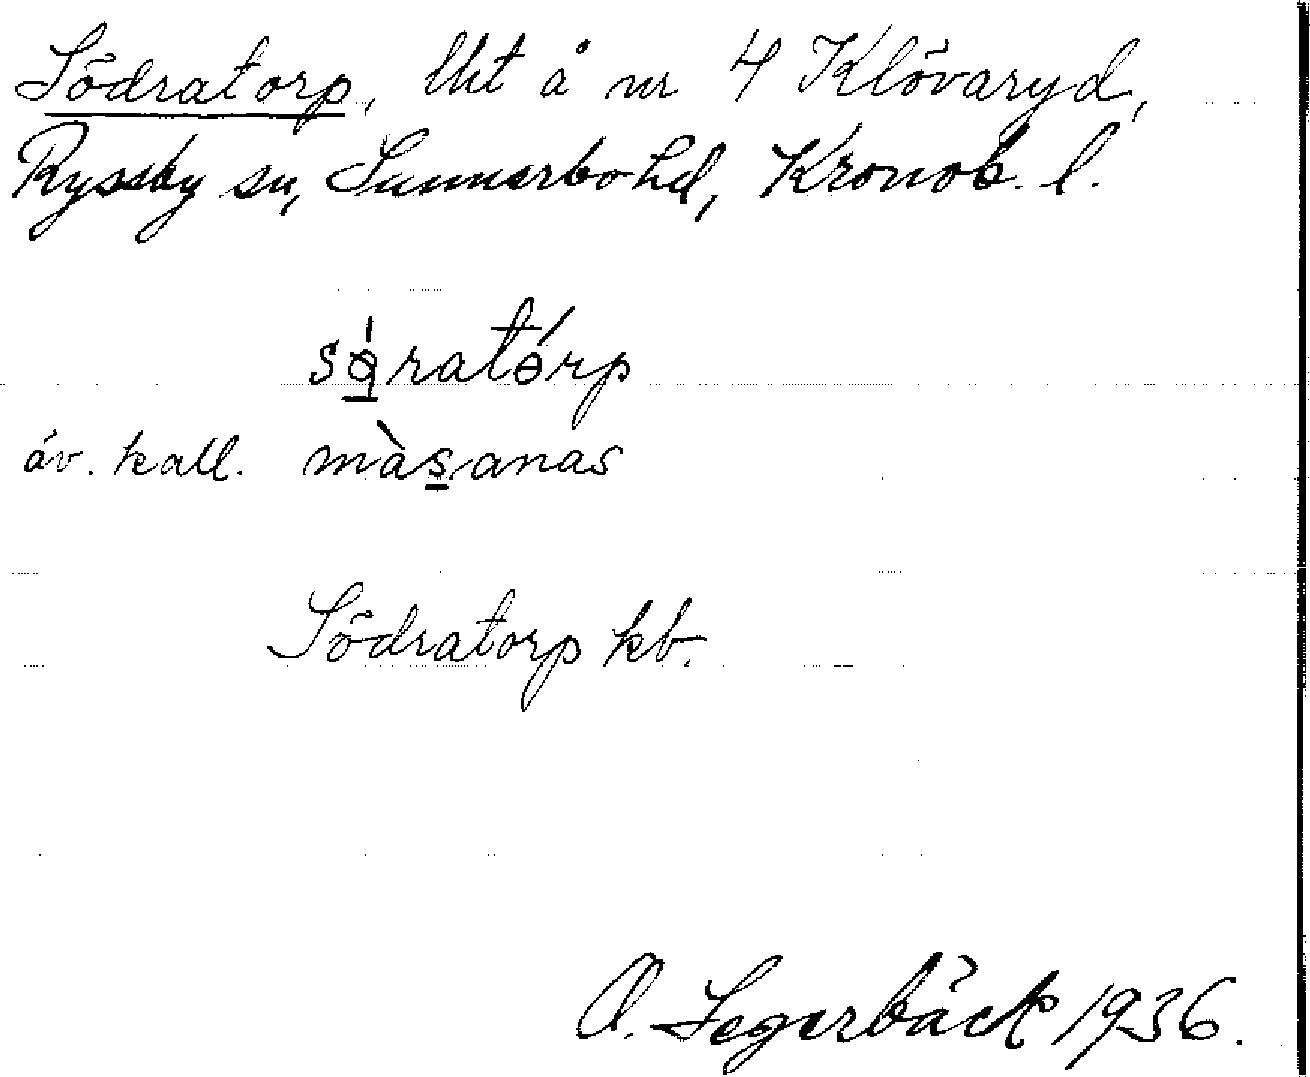 Södratorp, Uht å nr 4 Klövaryd,
Ryssby sn, Sunnerbo hd, Kronob. l.
äv. kall. màs̲anas
Södratorp kb.
O. Segerbäck 1936.